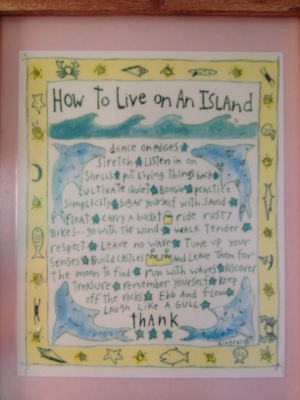 How To Live on An Island
dance on edges
Stretch Listen in on
Shells put Living Things back
cultivate Quiet Boogie practice
Simplicity Sugar yourself with Sand
Float carry a basket ride rusty
Bikes...go with the wind Walk Tender
respect Leave no wake Tune up your
Senses Build castles and Leave Them for
the moon to find run with waves discover
Treasure remember yourself Keep
off The rocks Ebb and Flow
Laugh Like A Gull
thank